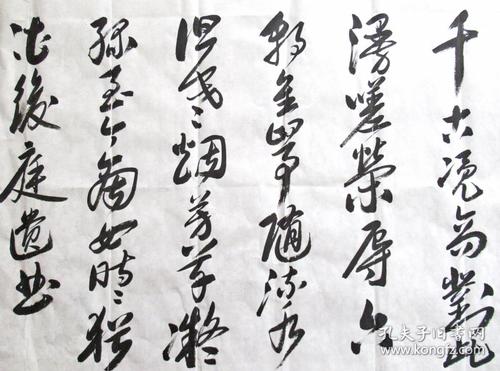 千古凭高對此
漫嗟榮辱六
朝舊事隨流水
但寒烟芳草凝
綠至今商女時〻猶
唱後庭遺曲
孔夫子旧书网
www.kongfz.com